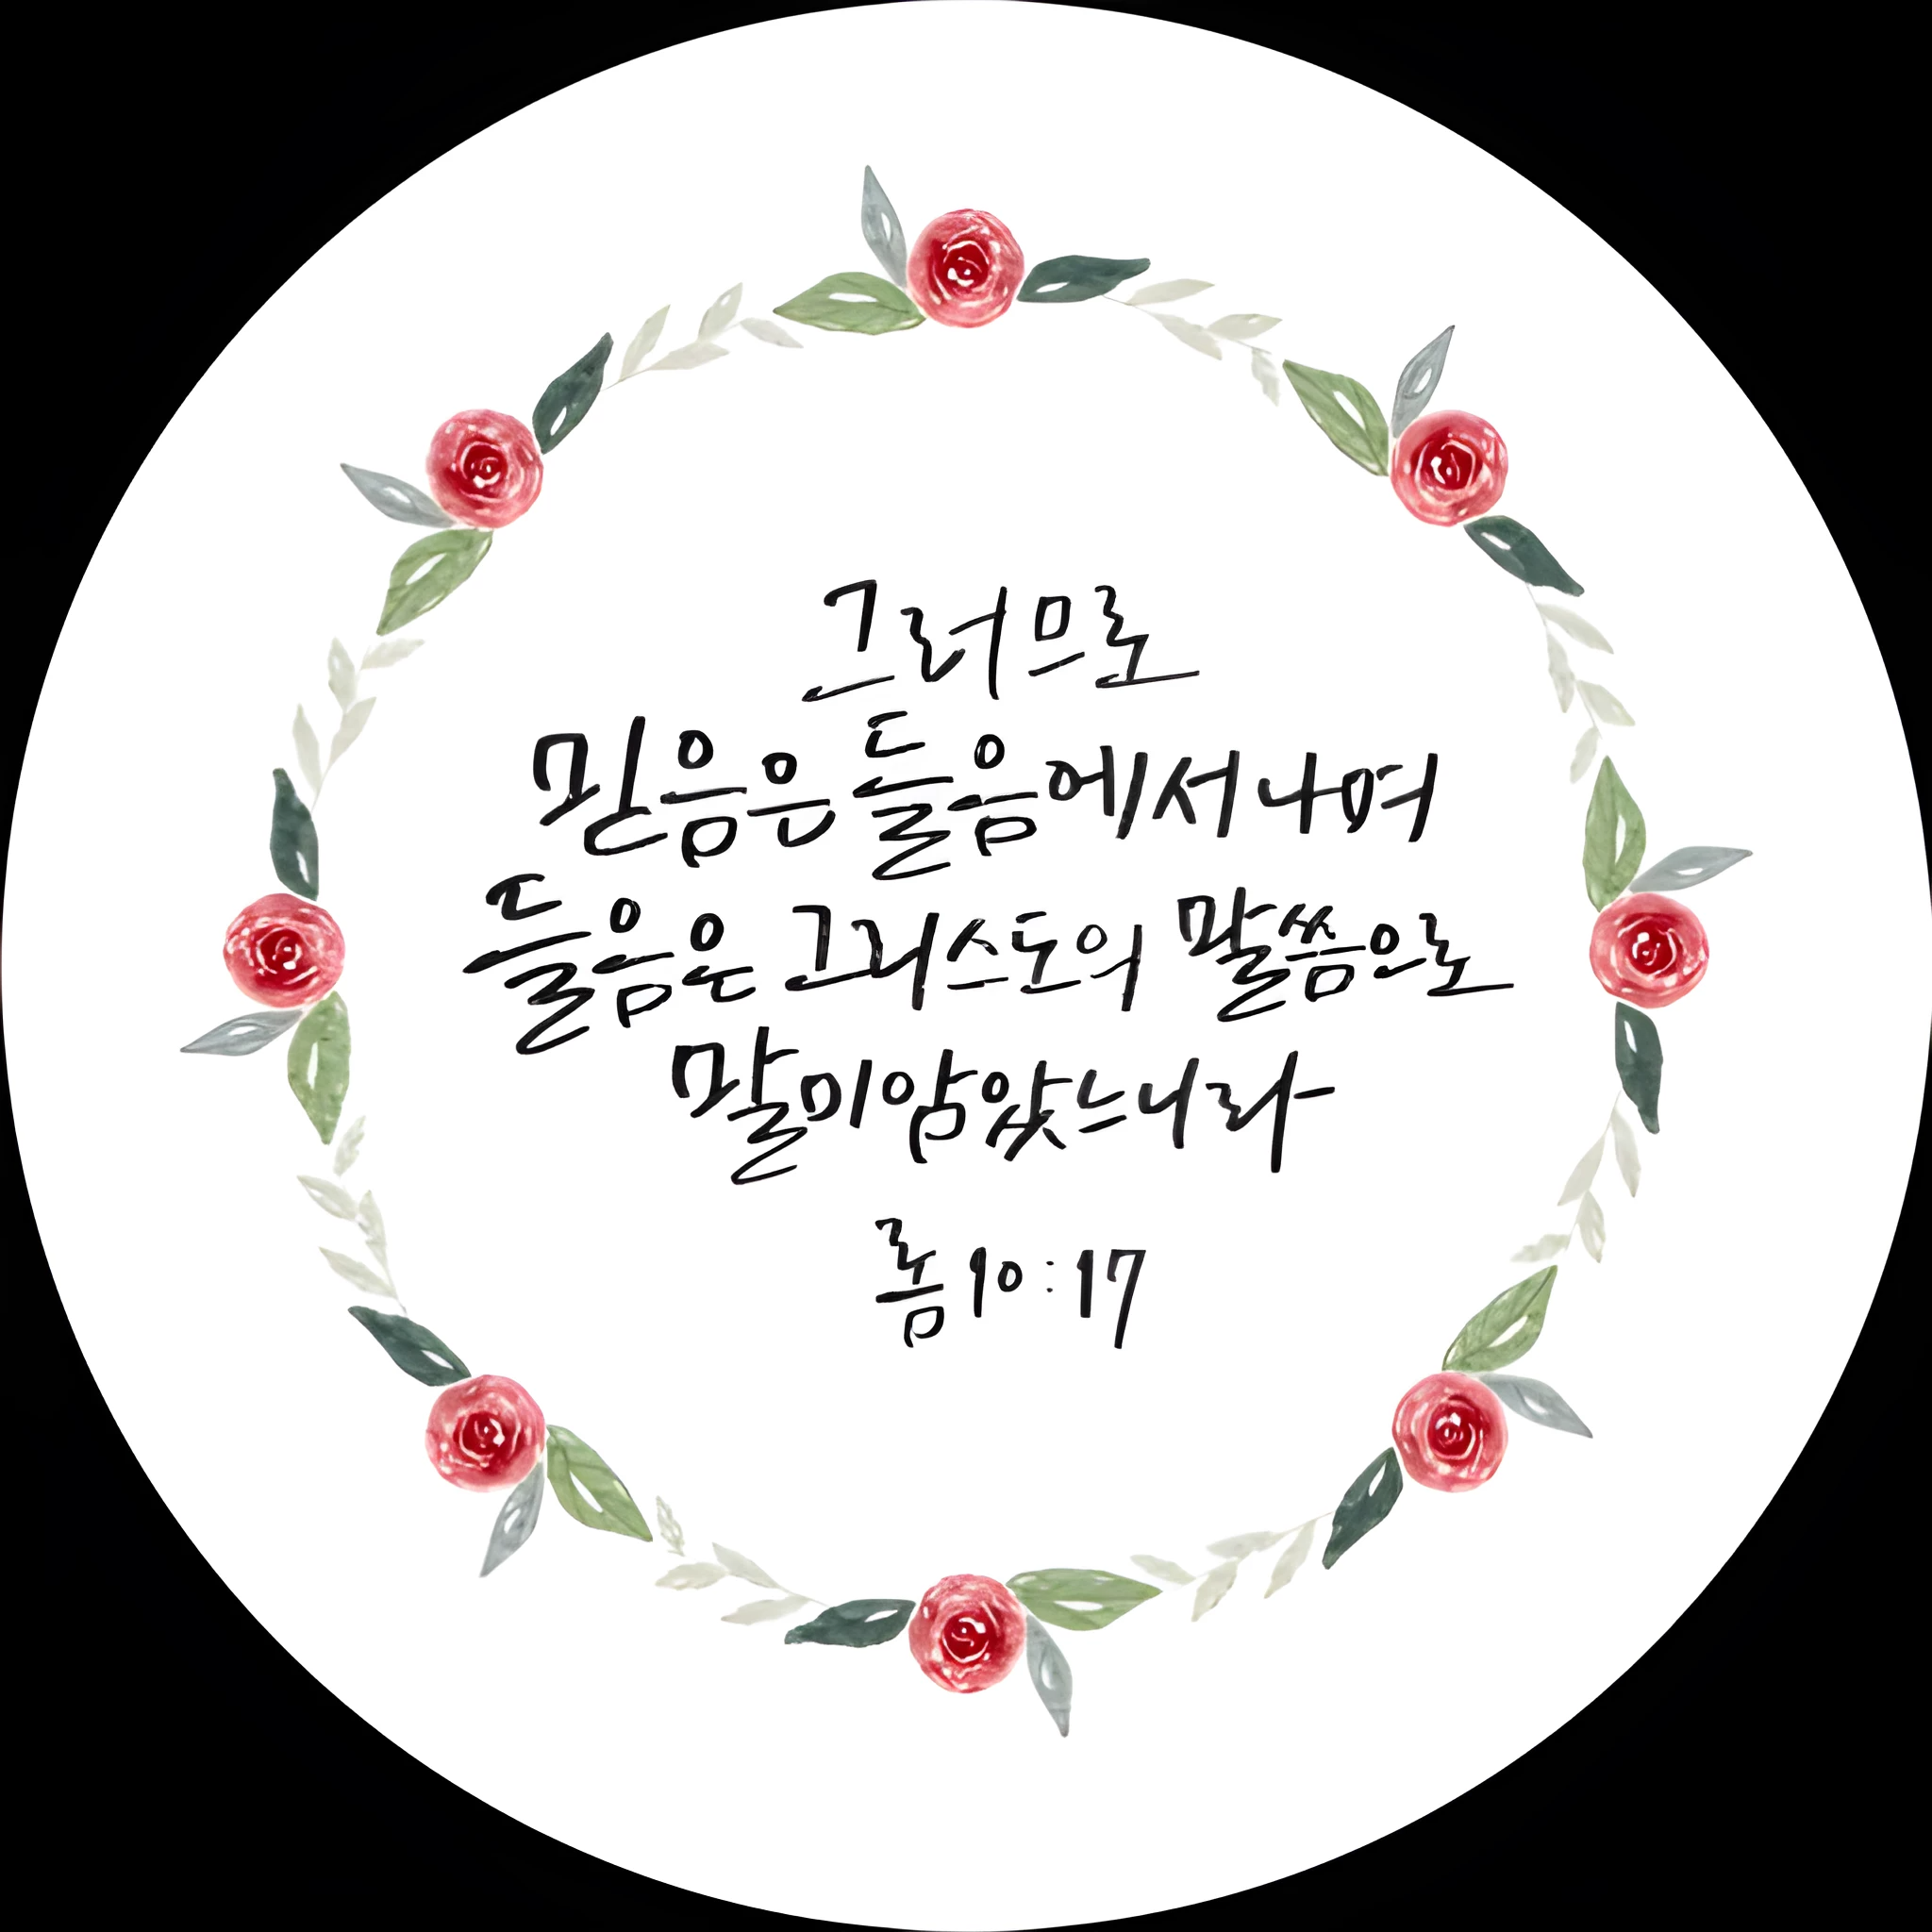 그러므로
믿음은 들음에서 나며
들음은 그리스도의 말씀으로
말미암았느니라
롬 10:17